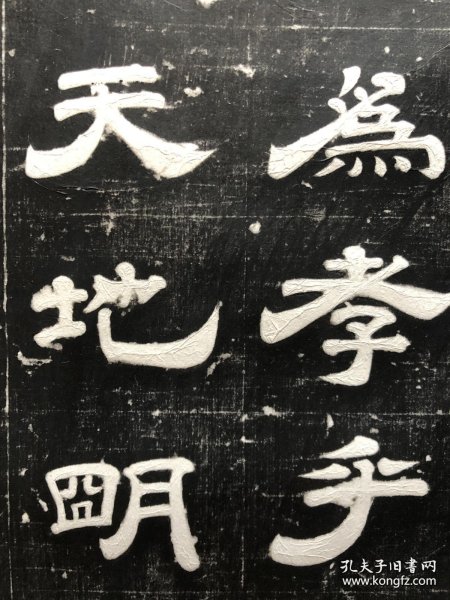 為孝乎
天地明
孔夫子旧书网
www.kongfz.com